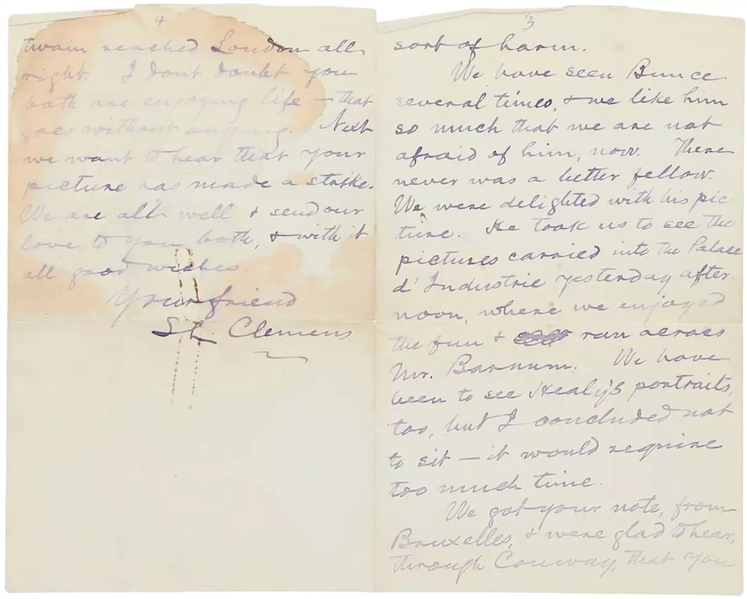 3
sort of harm.
We have seen Bunce
several times, & we like him
so much that we are not
afraid of him, now. There
never was a better fellow.
We were delighted with his pic-
ture. He took us to see the
pictures carried into the Palace
d' Industrie yesterday after-
noon, where we enjoyed
the fun & ran across
Mr. Barnum. We have
been to see Healy's portraits,
too, but I concluded not
to sit — it would require
too much time.
We got your note, from
Bruxelles, & were glad to hear,
through Conway, that you
4
twain reached London all
right. I don't doubt you
both are enjoying life — that
goes without saying. Next
we want to hear that your
picture has made a strike.
We are all well & send our
love to you both, & with it
all good wishes.
Your friend
SL. Clemens